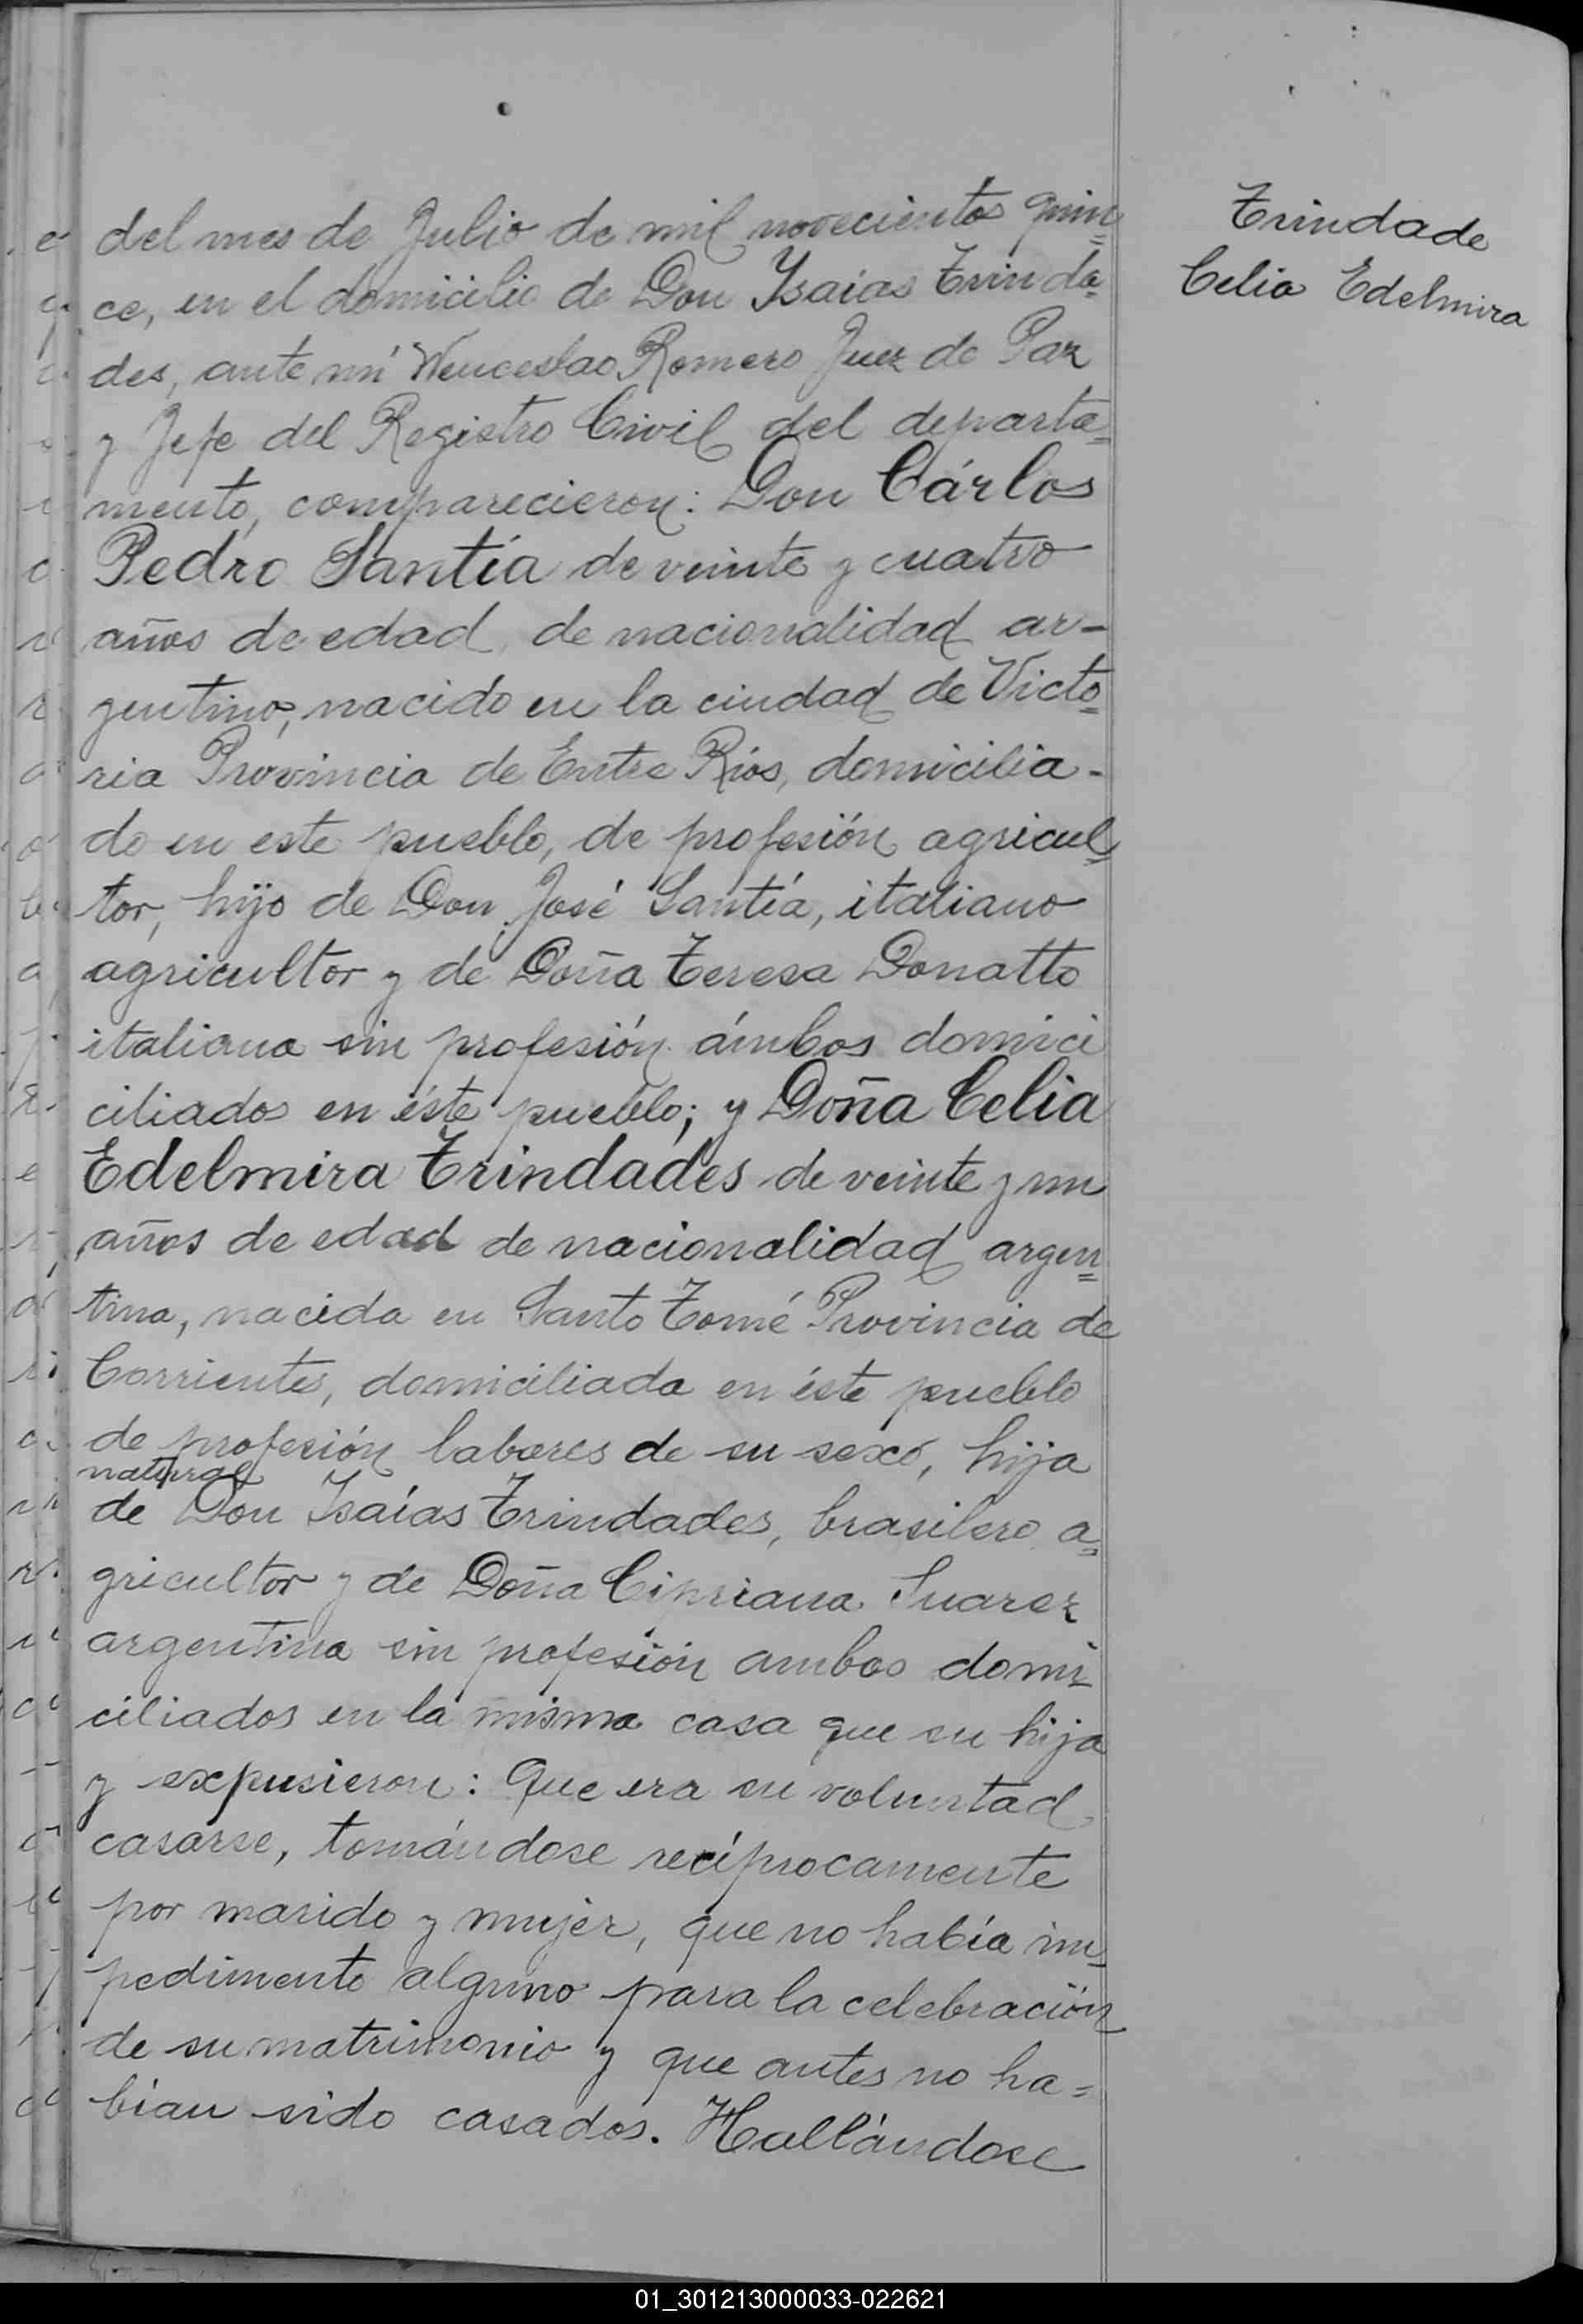 del mes de Julio de mil novecientos quin=
ce, en el domicilio de Don Ysaías Trinda=
des, ante mí Wenceslao Romero Juez de Paz
y Jefe del Registro Civil del departa=
mento, comparecieron: Don Cárlos
Pedro Santía de veinte y cuatro
años de edad, de nacionalidad ar-
gentino, nacido en la ciudad de Victo=
ria Provincia de Entre Ríos, domicilia-
do en este pueblo, de profesión agricul=
tor, hijo de Don José Santía, italiano
agricultor y de Doña Teresa Donatto
italiana sin profesión ámbos domici
ciliados en éste pueblo; y Doña Celia
Edelmira Trindades de veinte y un
años de edad de nacionalidad argen=
tina, nacida en Santo Tomé Provincia de
Corrientes, domiciliada en éste pueblo
de profesión labores de su sexo, hija
natural
de Don Isaías Trindades, brasilero a=
gricultor y de Doña Cipriana Suarez
argentina sin profesión ambos domi
ciliados en la misma casa que su hija
y expusieron: Que era su voluntad
casarse, tomándose recíprocamente
por marido y mujer, que no había im
pedimento alguno para la celebración
de su matrimonio y que antes no ha=
bían sido casados. Hallándose
Trindade
Celia Edelmira
01_301213000033-022621